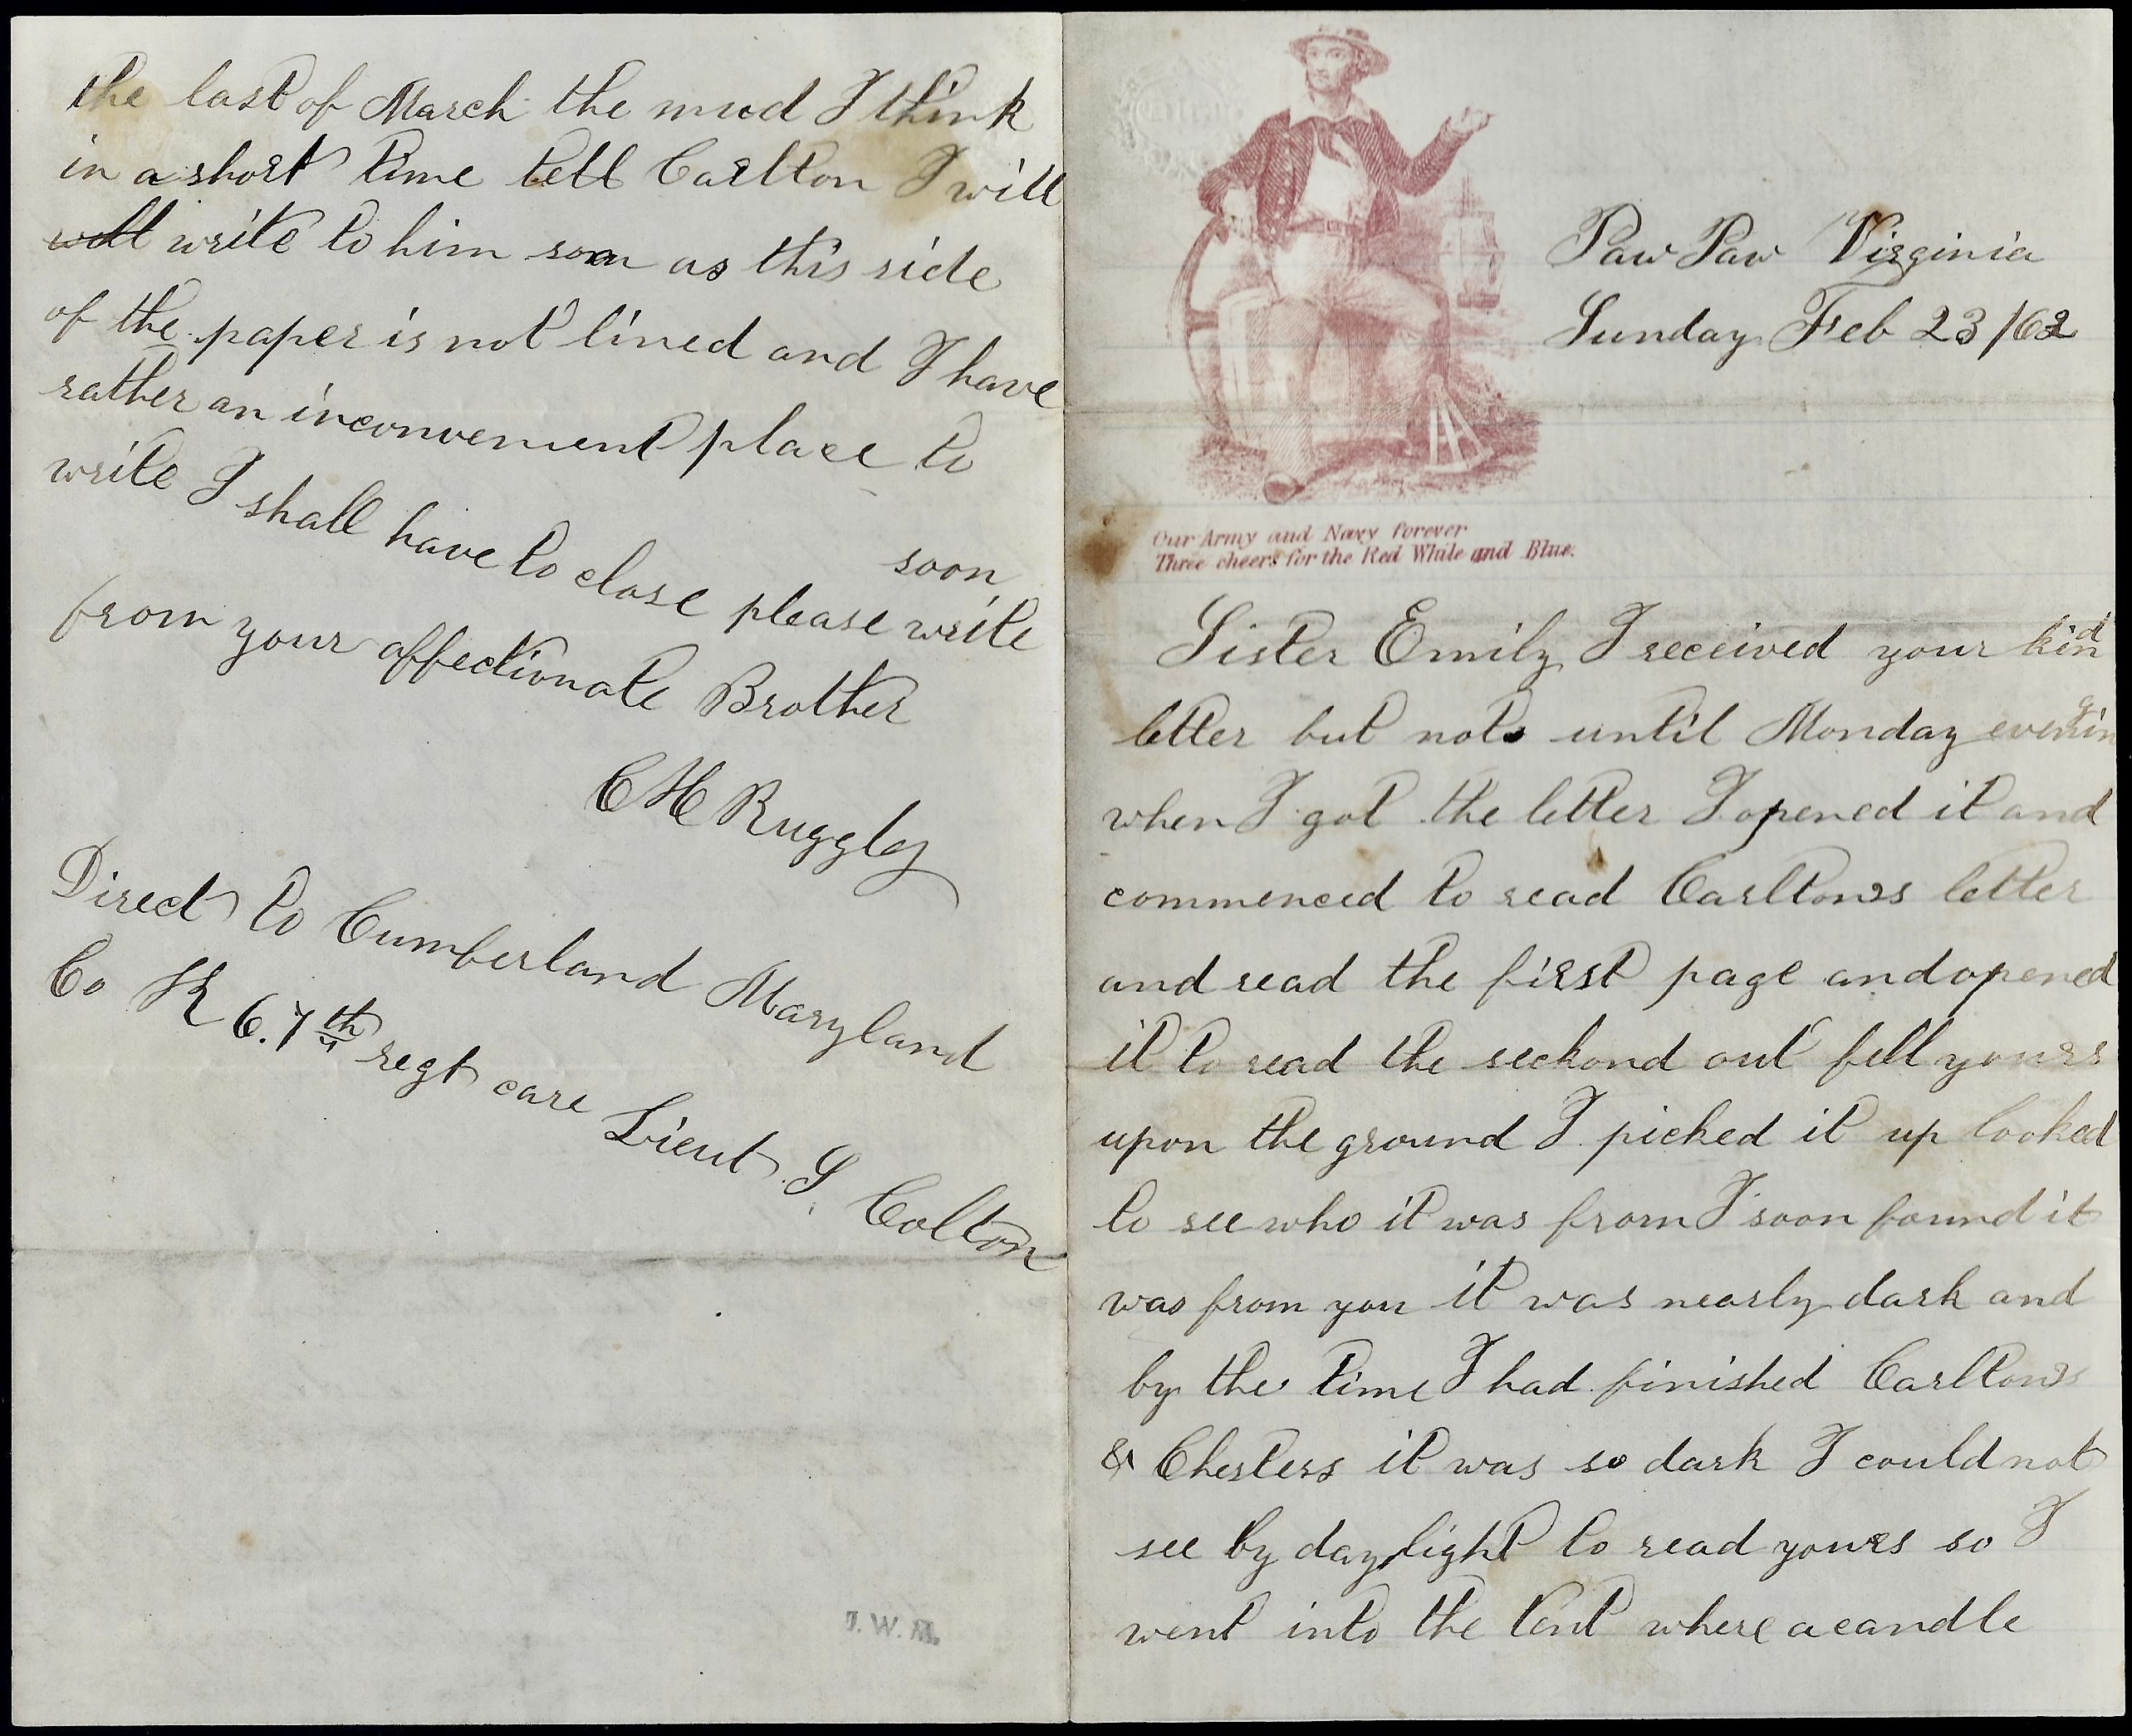 the last of March the mud I think
in a short time tell Carlton I will
will write to him soon as this side
of the paper is not lined and I have
rather an inconvenient place to
write I shall have to close please write
soon
from your affectionate Brother
C H Ruggles
Direct to Cumberland Maryland
Co K 67th regt care Lieut S Colton
T. W. M.
Paw Paw Virginia
Sunday Feb 23/62
Our Army and Navy forever
Three cheers for the Red White and Blue.
Sister Emily I received your kind
letter but not until Monday evening
when I got the letter I opened it and
commenced to read Carltons letter
and read the first page and opened
it to read the seckond out fell yours
upon the ground I picked it up looked
to see who it was from I soon found it
was from you it was nearly dark and
by the time I had finished Carltons
& Chesters it was so dark I could not
see by day light to read yours so I
went into the tent where a candle